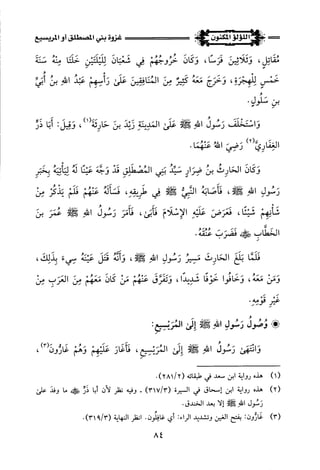 اللؤلؤ المكنون
غزوة بني المصطلق أو المريسيع
مُقَاتِلٍ، وَثَلَاثِينَ فَرَسًا، وَكَانَ خُرُوجُهُمْ فِي شَعْبَانَ لِلَيْلَتَيْنِ خَلَتَا مِنْهُ سَنَةَ
خَمْسٍ لِلْهِجْرَةِ، وَخَرَجَ مَعَهُ كَثِيرٌ مِنَ المُنَافِقِينَ عَلَى رَأْسِهِمْ عَبْدُ اللهِ بنُ أُبَيِّ
بنِ سَلُولٍ.
وَاسْتَخْلَفَ رَسُولُ اللهِ ﷺ عَلَى المَدِينَةِ زَيْدَ بنَ حَارِثَةَ(١)، وَقِيلَ: أَبَا ذَرٍّ
الغِفَارِيَّ(٢) رَضِيَ اللهُ عَنْهُمَا.
وَكَانَ الحَارِثُ بنُ ضِرَارٍ سَيِّدُ بَنِي المُصْطَلِقِ قَدْ وَجَّهَ عَيْنًا لَهُ لِيَأْتِيَهُ بِخَبَرِ
رَسُولِ اللهِ ﷺ، فَأَصَابَهُ النَّبِيُّ ﷺ فِي طَرِيقِهِ، فَسَأَلَهُ عَنْهُمْ فَلَمْ يَذْكُرْ مِنْ
شَأْنِهِمْ شَيْئًا، فَعَرَضَ عَلَيْهِ الإِسْلَامَ فَأَبَى، فَأَمَرَ رَسُولُ اللهِ ﷺ عُمَرَ بنَ
الخَطَّابِ ﷺ فَضَرَبَ عُنُقَهُ.
فَلَمَّا بَلَغَ الحَارِثَ مَسِيرُ رَسُولِ اللهِ ﷺ، وَأَنَّهُ قَتَلَ عَيْنَهُ سِيءَ بِذَلِكَ،
وَمَنْ مَعَهُ، وَخَافُوا خَوْفًا شَدِيدًا، وَتَفَرَّقَ عَنْهُمْ مَنْ كَانَ مَعَهُمْ مِنَ العَرَبِ مِنْ
غَيْرِ قَوْمِهِ.
وُصُولُ رَسُولِ اللهِ ﷺ إِلَى المُرَيْسِيعِ:
وَانْتَهَى رَسُولُ اللهِ ﷺ إِلَى المُرَيْسِيعِ، فَأَغَارَ عَلَيْهِمْ وَهُمْ غَارُّونَ(٣)،
(١) هذه رواية ابن سعد في طبقاته (٢/ ٢٨١).
(٢) هذه رواية ابن إسحاق في السيرة (٣/ ٣١٧) ـ وفيه نظر لأن أبا ذَرٍّ ﷺ ما وفدَ على
رَسُولِ اللهِ ﷺ إلا بعد الخندق.
(٣) غَارُّون: بفتح الغين وتشديد الراء: أي غافِلُون. انظر النهاية (٣/ ٣١٩).
٨٤